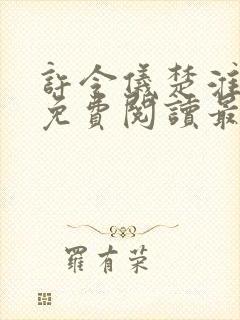 許令儀楚淮
免費閱讀最
羅有荣